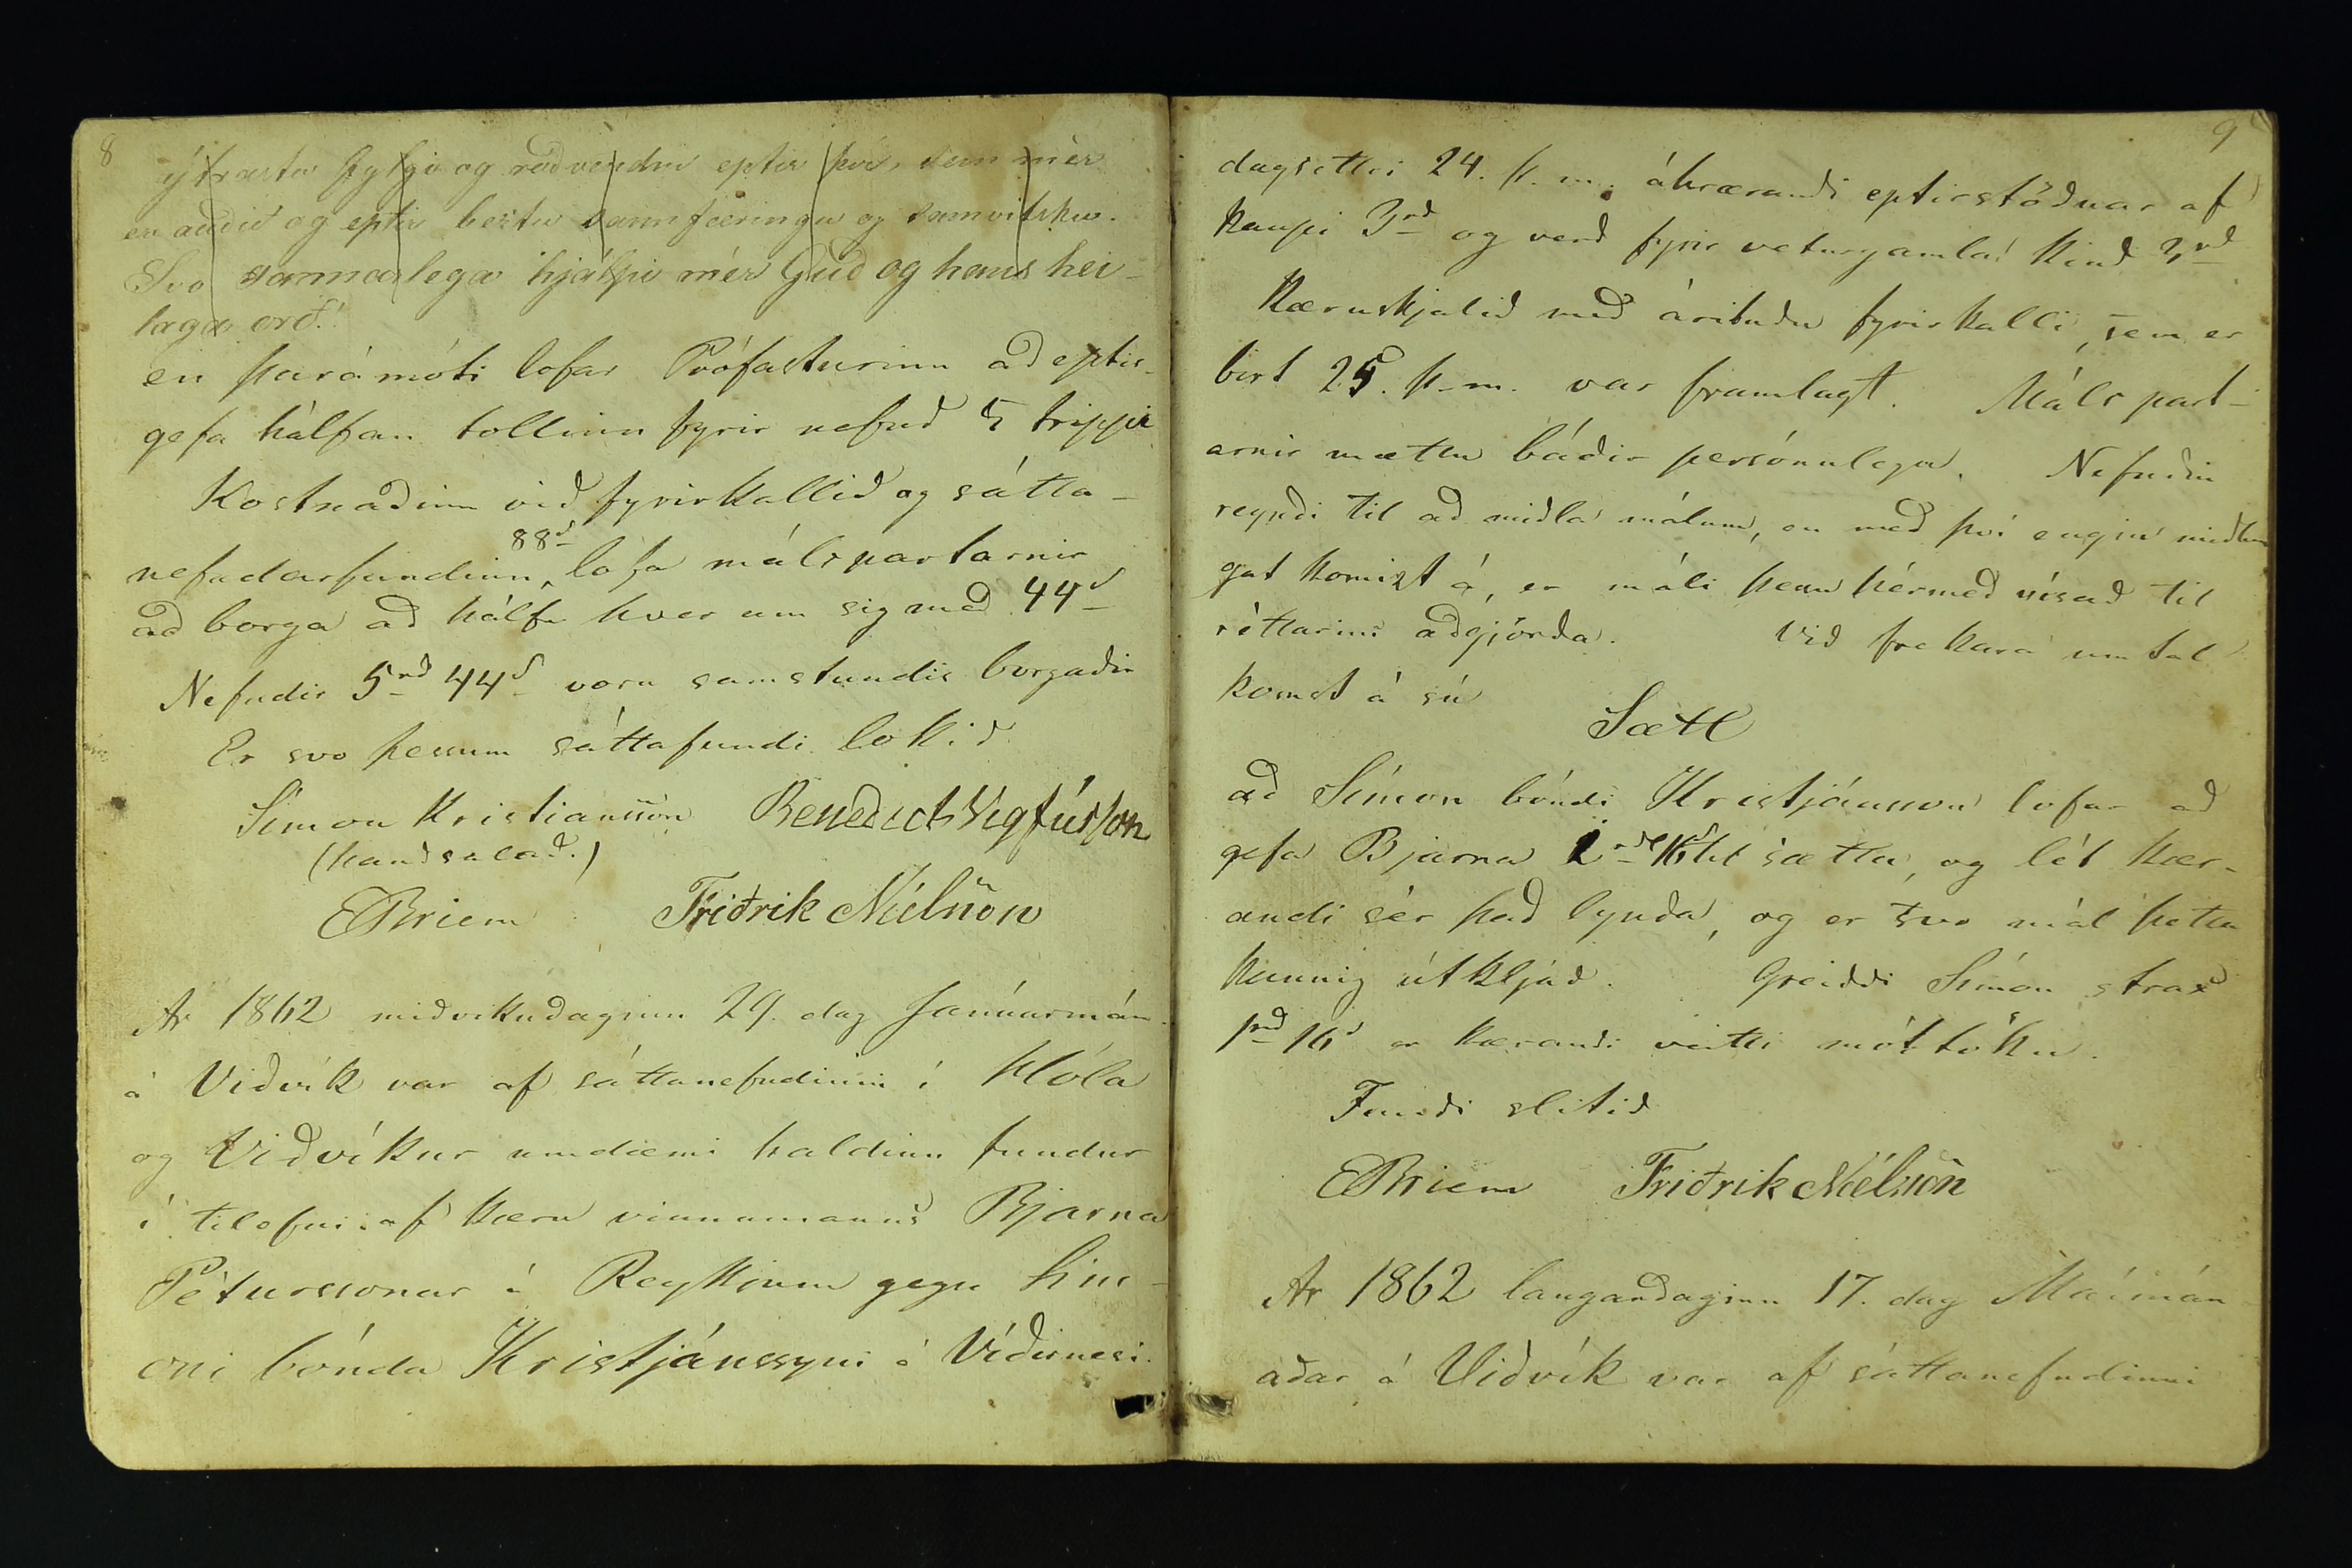 8
ýtrastu fylgi og ráðvendni eptir því, sem mér
er auðið og eptir beztu sannfæringu og samvitsku.
Svo sannarlega hjálpi mér Guð og hans hei-
laga orð!
en þarámóti lofar Prófasturinn að eptir-
gefa hálfan tollinn fyrir nefnd 5 trippi
Kostnaðinn við fyrirkallið og sátta-
88s
nefndarfundinn, lofa málspartarnir
að borga að hálfu hver um sig með 44s
Nefndir 5rd 44s voru samstundis borgaðir
Er svo þessum sáttafundi lokið
Símon Kristiansson Benedict Vigfússon
(handsalað.)
EBriem Friðrik Níelsson
Ár 1862 miðvikudaginn 29. dag Janúarmán.
á Viðvík var af sáttanefndinni í Hóla
og Viðvíkur umdæmi haldinn fundur
í tilefni af kæru vinnumanns Bjarna
Péturssonar á Reykjum gegn Sím-
oni bónda Kristjánssyni á Víðirnesi.
9
dagsettri 24. þ. m. áhrærandi eptirstöðvar af
kaupi 3rd og verð fyrir veturgamla kind 3rd
Kæruskjalið með árituðu fyrirkalli, sem er
birt 25. þ. m. var framlagt. Máls part-
arnir mættu báðir persónulega. Nefndin
reyndi til að miðla málum, en með því engin miðlun
gat komizt á, er máli þessu hérmeð vísað til
réttarins aðgjörða. Við frekara umtal
komst á sú
Sætt
að Símon bóndi Kristjánsson lofar að
gefa Bjarna 1rd 16s til sætta, og lét kær-
andi sér það lynda, og er svo mál þetta
þannig útkljáð. Greiddi Símon strax
1rd 16s er kærandi veitti móttöku.
Fundi slitið
EBriem Friðrik Níelsson
Ár 1862 laugardaginn 17. dag Maímán-
aðar á Viðvík var af sáttanefndinni